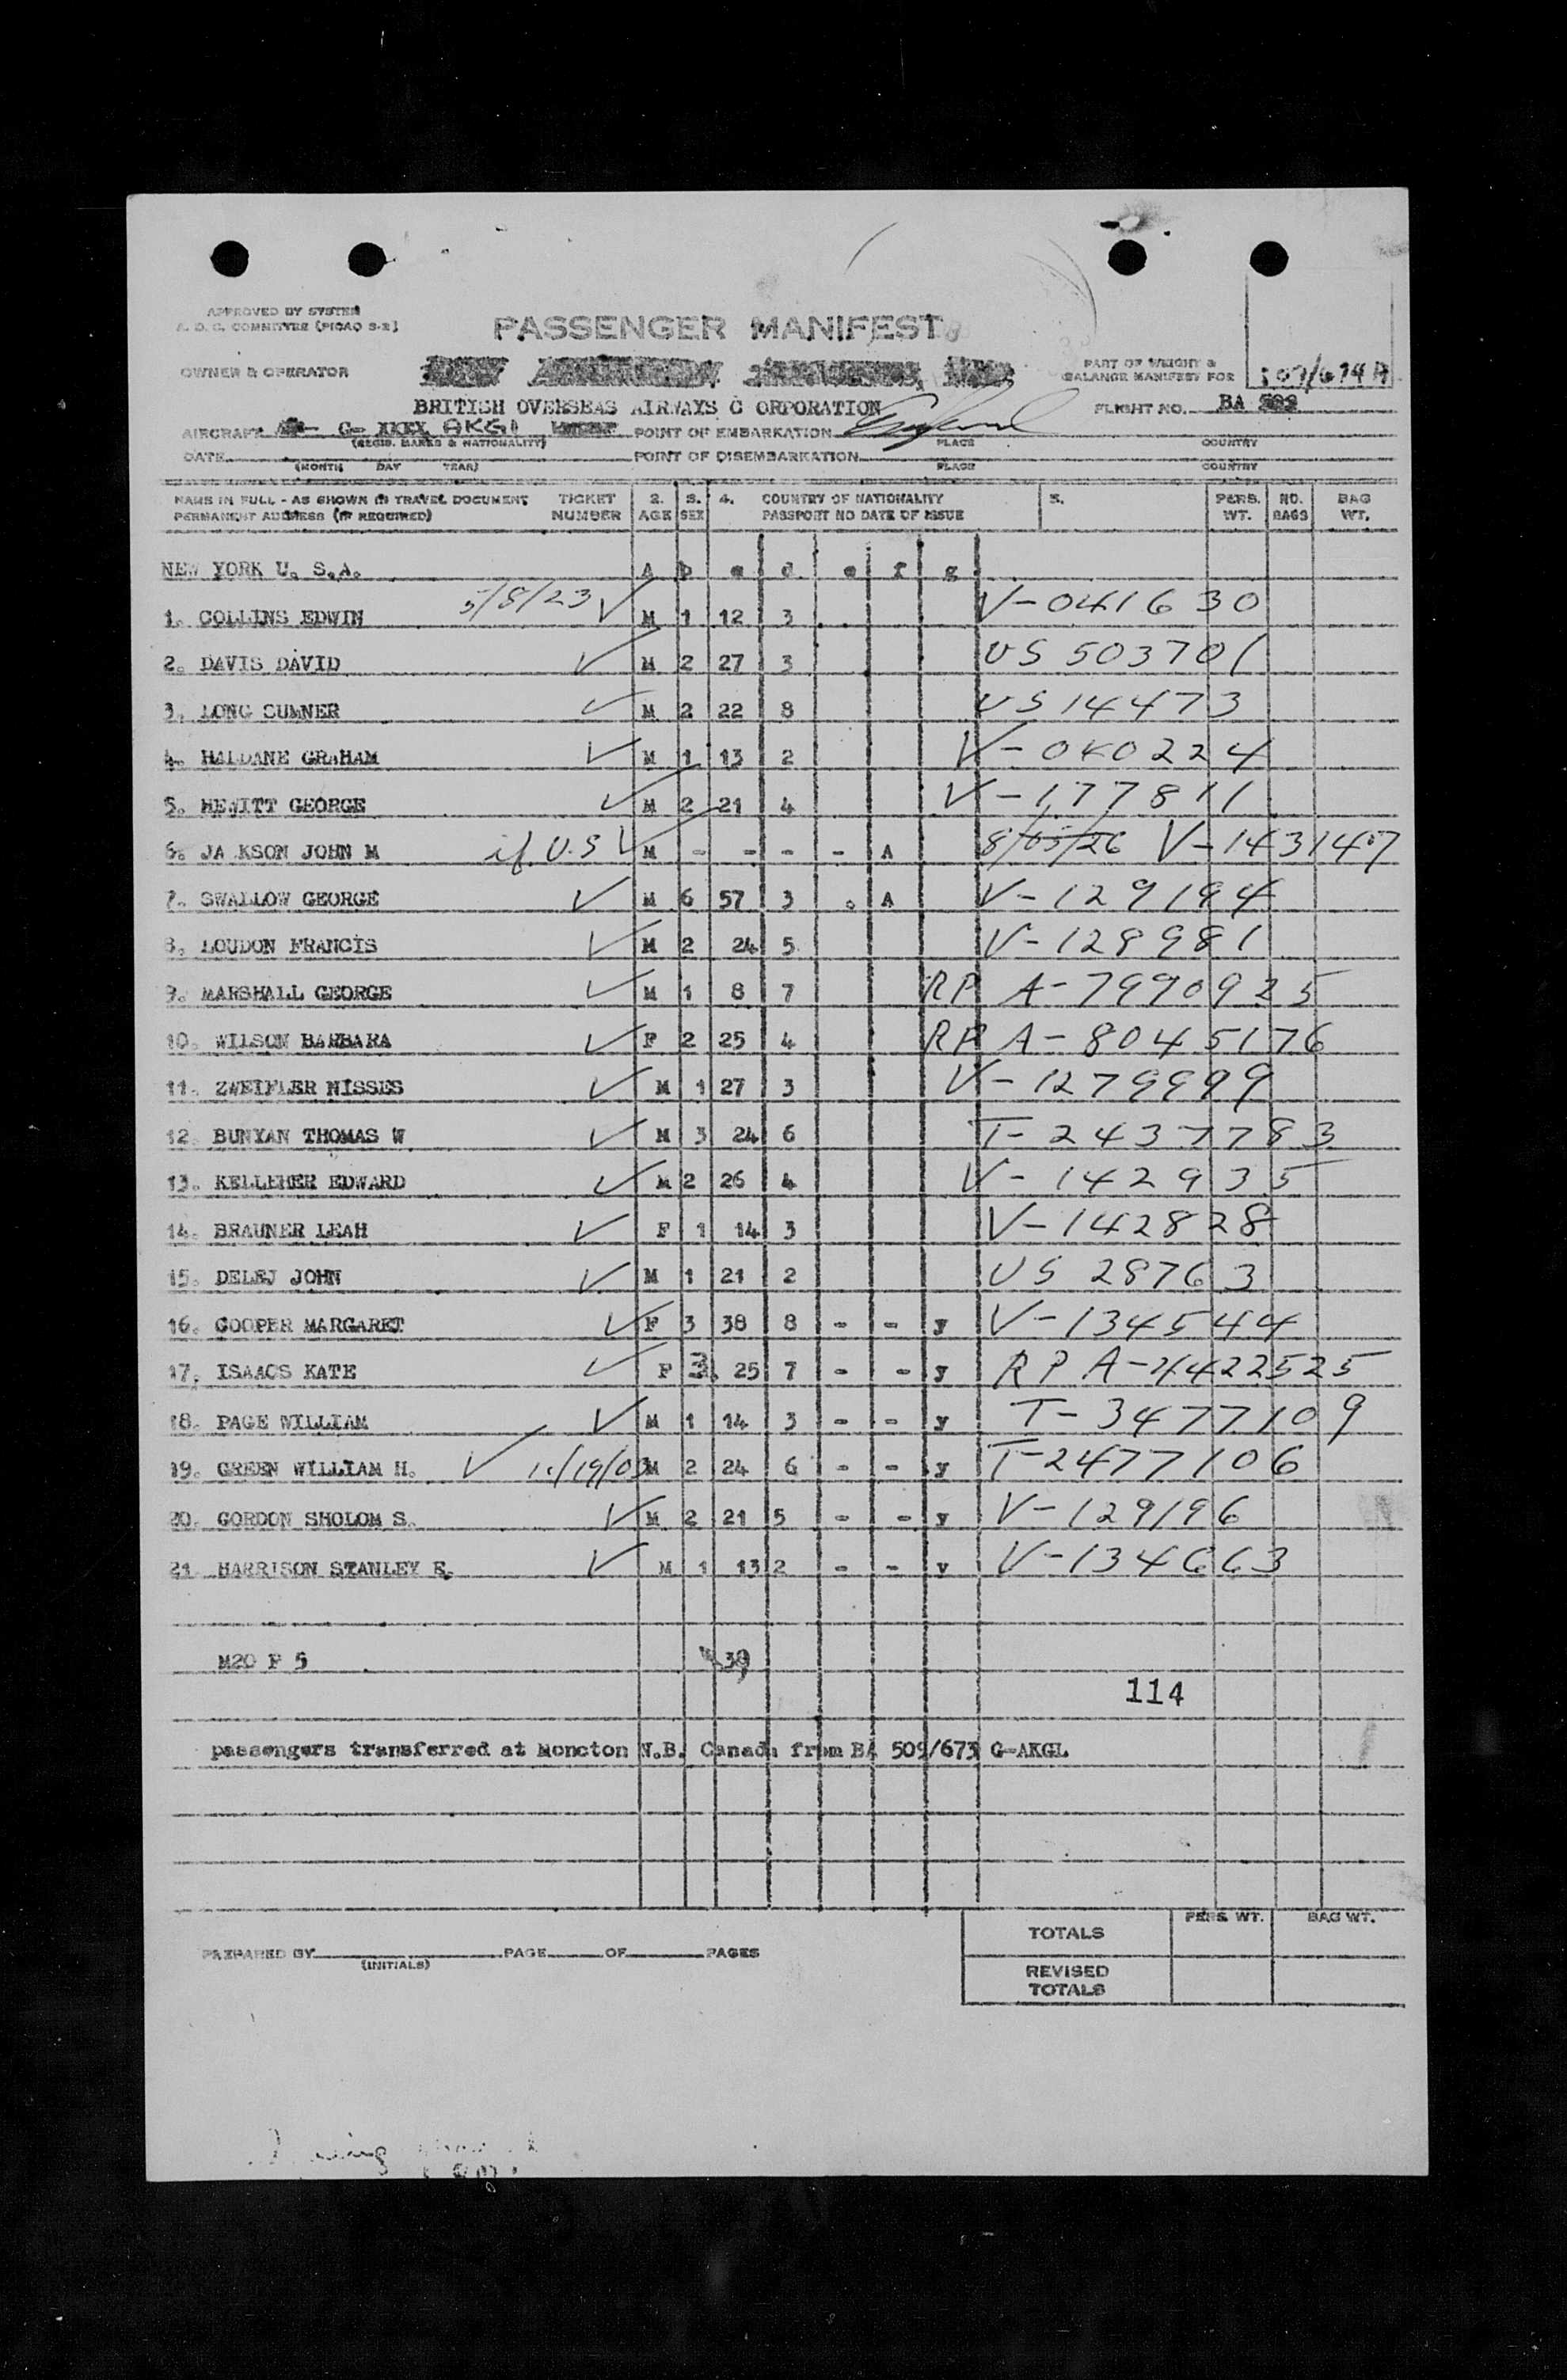 APPROVED BY SYSTEM
A. D. C. COMMITTEE (PICAO S-2)
PASSENGER MANIFEST
OWNER & OPERATOR
PART OF WEIGHT &
BALANCE MANIFEST FOR
BRITISH OVERSEAS AIRWAYS C ORPORATION
FLIGHT NO. BA
AIRCRAFT G- XXXX AKGL POINT OF EMBARKATION
(REGIS. MARKS & NATIONALITY) PLACE COUNTRY
DATE POINT OF DISEMBARKATION
(MONTH DAY YEAR) PLACE COUNTRY
NAME IN FULL - AS SHOWN IN TRAVEL DOCUMENT TICKET 2. 3. 4. COUNTRY OF NATIONALITY 5. PERS. NO. BAG
PERMANENT ADDRESS (IF REQUIRED) NUMBER AGE SEX PASSPORT NO DATE OF ISSUE WT. BAGS WT.
NEW YORK U. S.A. A b c d e f g
1. COLLINS EDWIN 5/8/23 ✓ M 1 12 3 V-041630
2. DAVIS DAVID ✓ M 2 27 3 US 503701
3. LONG SUMNER ✓ M 2 22 8 US 14473
4. HALDANE GRAHAM ✓ M 1 13 2 V-040224
5. HEWITT GEORGE ✓ M 2 21 4 V-177811
6. JA KSON JOHN M U.S ✓ M - - - - A 8/05/26 V-1431407
7. SWALLOW GEORGE ✓ M 6 57 3 . A V-129194
8. LOUDON FRANCIS ✓ M 2 24 5 V-128981
9. MARSHALL GEORGE ✓ M 1 8 7 RP A-7990925
10. WILSON BARBARA ✓ F 2 25 4 RP A-8045176
11. ZWEIFLER NISSES ✓ M 1 27 3 V-1279999
12. BUNYAN THOMAS W ✓ M 3 24 6 T-2437783
13. KELLEHER EDWARD ✓ M 2 26 4 V-142935
14. BRAUNER LEAH ✓ F 1 14 3 V-142828
15. DELEJ JOHN ✓ M 1 21 2 US 28763
16. COOPER MARGARET ✓ F 3 38 8 - - y V-134544
17. ISAACS KATE ✓ F 3 25 7 - - y RP A-4422525
18. PAGE WILLIAM ✓ M 1 14 3 - - y T-3477109
19. GREEN WILLIAM H. ✓ M 2 24 6 - - y T-2477106
20. GORDON SHOLOM S. ✓ M 2 21 5 - - y V-129196
21 HARRISON STANLEY E. ✓ M 1 13 2 - - y V-134663
M20 F 5 39
114
passengers transferred at Moncton N.B. Canada from BA 509/673 G-AKGL
TOTALS PERS. WT. BAG WT.
PREPARED BY PAGE OF PAGES
(INITIALS)
REVISED
TOTALS